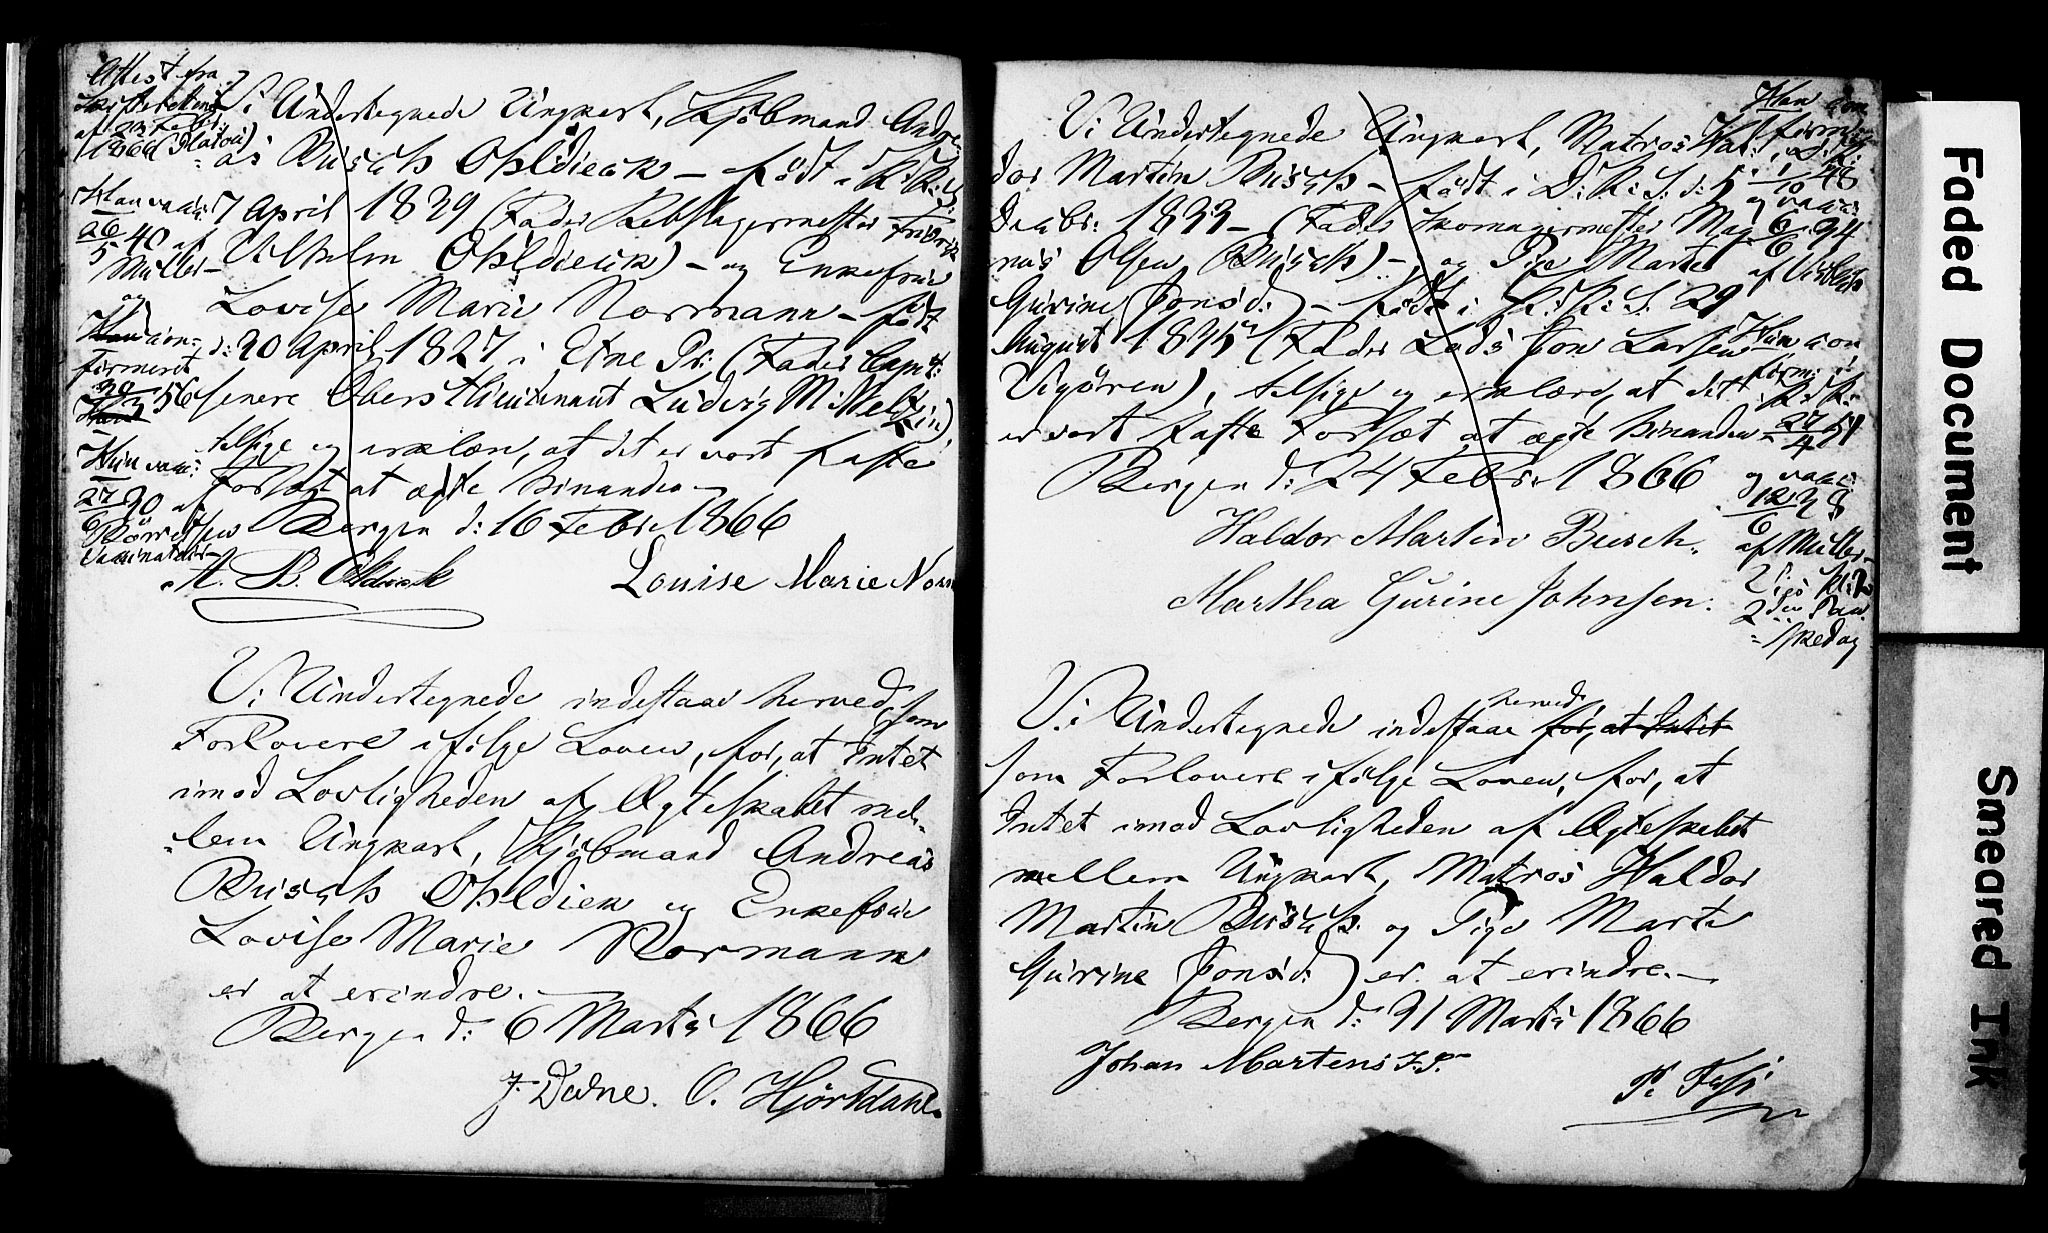 Attest fra
Skifteretten
af 23 Febr:
1866 (Platou)
Han vacc:
26/5 40 af
Müller
og
con-
firmeret
56
Hun vacc:
27/6 30 af
Børresen
Vaccinateur
Vi Undertegnede Ungkarl, Kjøbmand Andre-
as Busch Ohldieck – født i K: K: S:
7 April 1839 (Fader Rebslagermester Fredrik
Vilhelm Ohldieck) – og Enkefrue
Lovise Marie Normann – født
d: 20 April 1827 i Etne Pr: (Fader Capt:
senere Oberstlieutenant Ludvig M:
tilsige og erklære, at det er vort faste
Forsæt at ægte hinanden –
Bergen d: 16 Febr: 1866
A. B. Ohldieck
Louise Marie Norm
Vi Undertegnede indestaae herved, som
Forlovere ifølge Loven, for, at Intet
imod Lovligheden af Ægteskabet mel-
lem Ungkarl, Kjøbmand Andreas
Busch Ohldieck og Enkefrue
Lovise Marie Normann
er at erindre. –
Bergen d: 6 Marts 1866
J. Dedne. O. Hjortdahl.
Vi Undertegnede Ungkarl, Matros Hal-
dor Martin Busch – født i D: K: S: d: 5
Decbr: 1833 – (Fader Skomagermester Mag-
nus Olsen Busch) – og Pige Marte
Gurine (Jonsd:) – født i K: K: S: 29
August 1835 (Fader Lods Jon Larsen
Vigøren), tilsige og erklære, at det
er vort faste Forsæt at ægte hinanden –
Bergen d: 24 Febr: 1866
Haldor Martin Busch.
Martha Gurine Johnsen.
Han con
firm:
i D: K:
1/10 48
og vacc:
6/6 34
af
Hun con
firm: i
K: K:
27/4 51
og vacc:
12/6 38
af Müller
Vigs kl: 12
2den Paa-
skedag
Vi Undertegnede indestaae for, at Intet
herved
som Forlovere ifølge Loven, for, at
Intet imod Lovligheden af Ægteskabet
mellem Ungkarl, Matros Haldor
Martin Busch og Pige Marte
Gurine (Jonsd:) er at erindre. –
Bergen d: 31 Marts 1866
Johan Martens
Faded Document
Smeared Ink